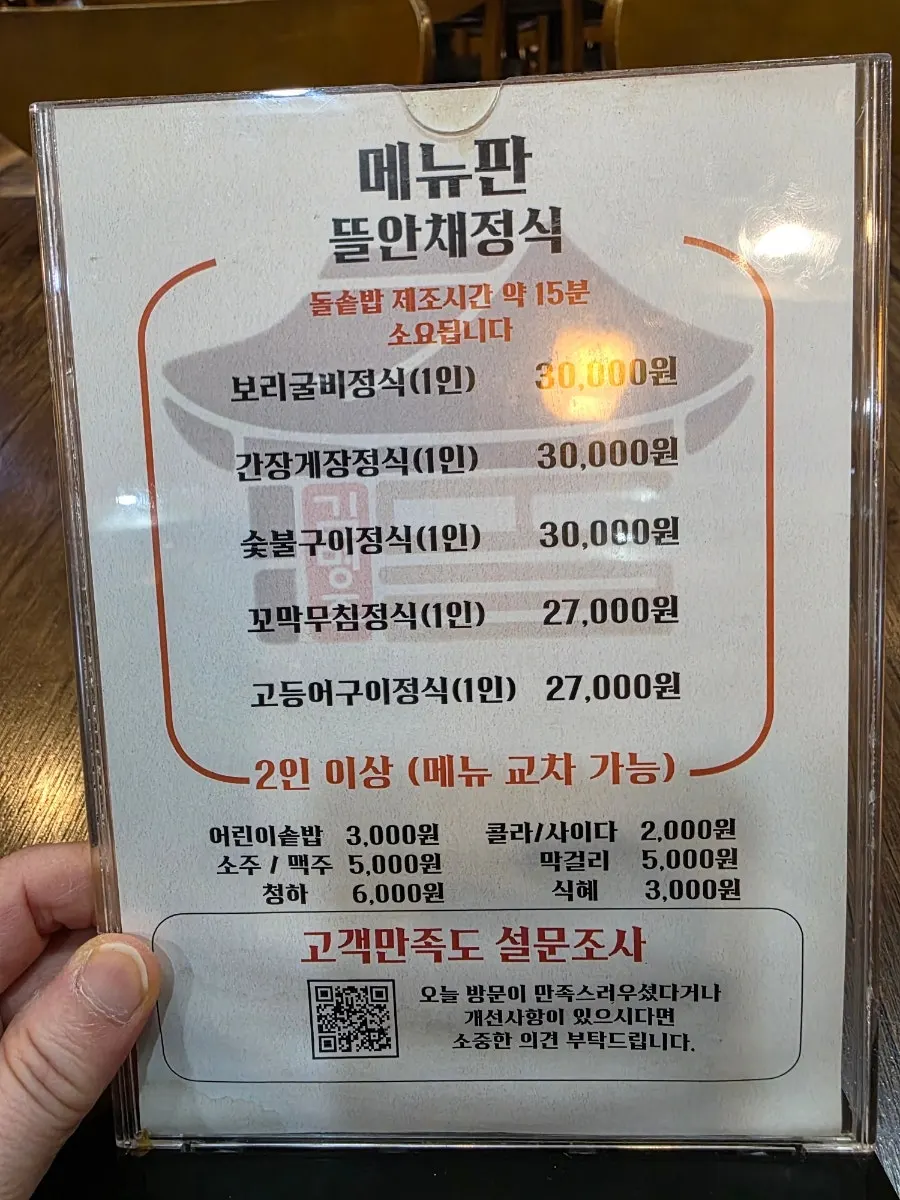 메뉴판
뜰안채정식
돌솥밥 제조시간 약 15분
소요됩니다
보리굴비정식(1인) 30,000원
간장게장정식(1인) 30,000원
숯불구이정식(1인) 30,000원
꼬막무침정식(1인) 27,000원
고등어구이정식(1인) 27,000원
2인 이상 (메뉴 교차 가능)
어린이솥밥 3,000원 콜라/사이다 2,000원
소주 / 맥주 5,000원 막걸리 5,000원
청하 6,000원 식혜 3,000원
고객만족도 설문조사
오늘 방문이 만족스러우셨다거나
개선사항이 있으시다면
소중한 의견 부탁드립니다.